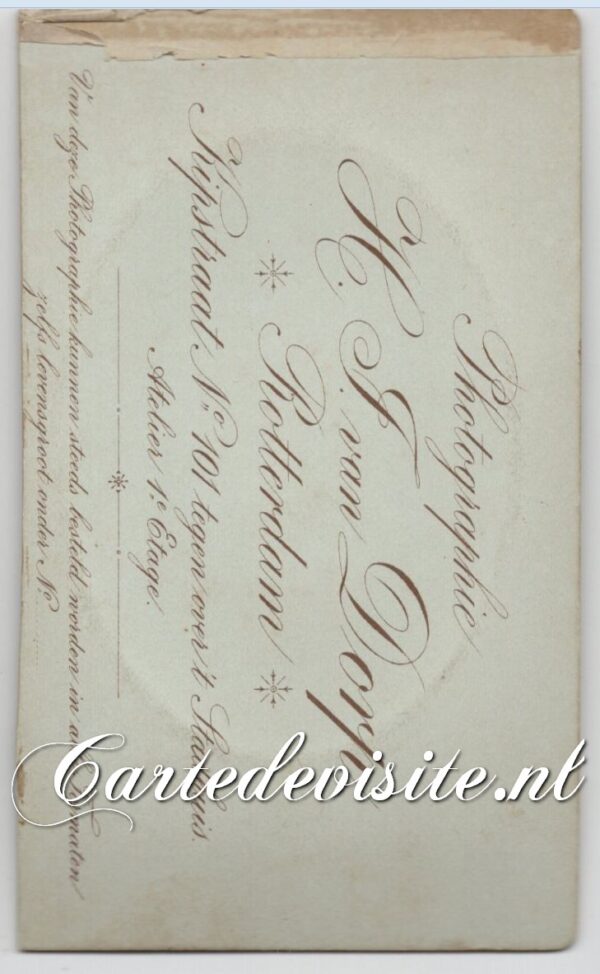 Photographie
H. J. van Dorp
Rotterdam
Kipstraat, No. 101 tegen over 't Stadhuis.
Atelier 1e Etage.
Van deze Photographie kunnen steeds besteld worden in alle Formaten
zelfs levensgroot onder No.
Cartedevisite.nl